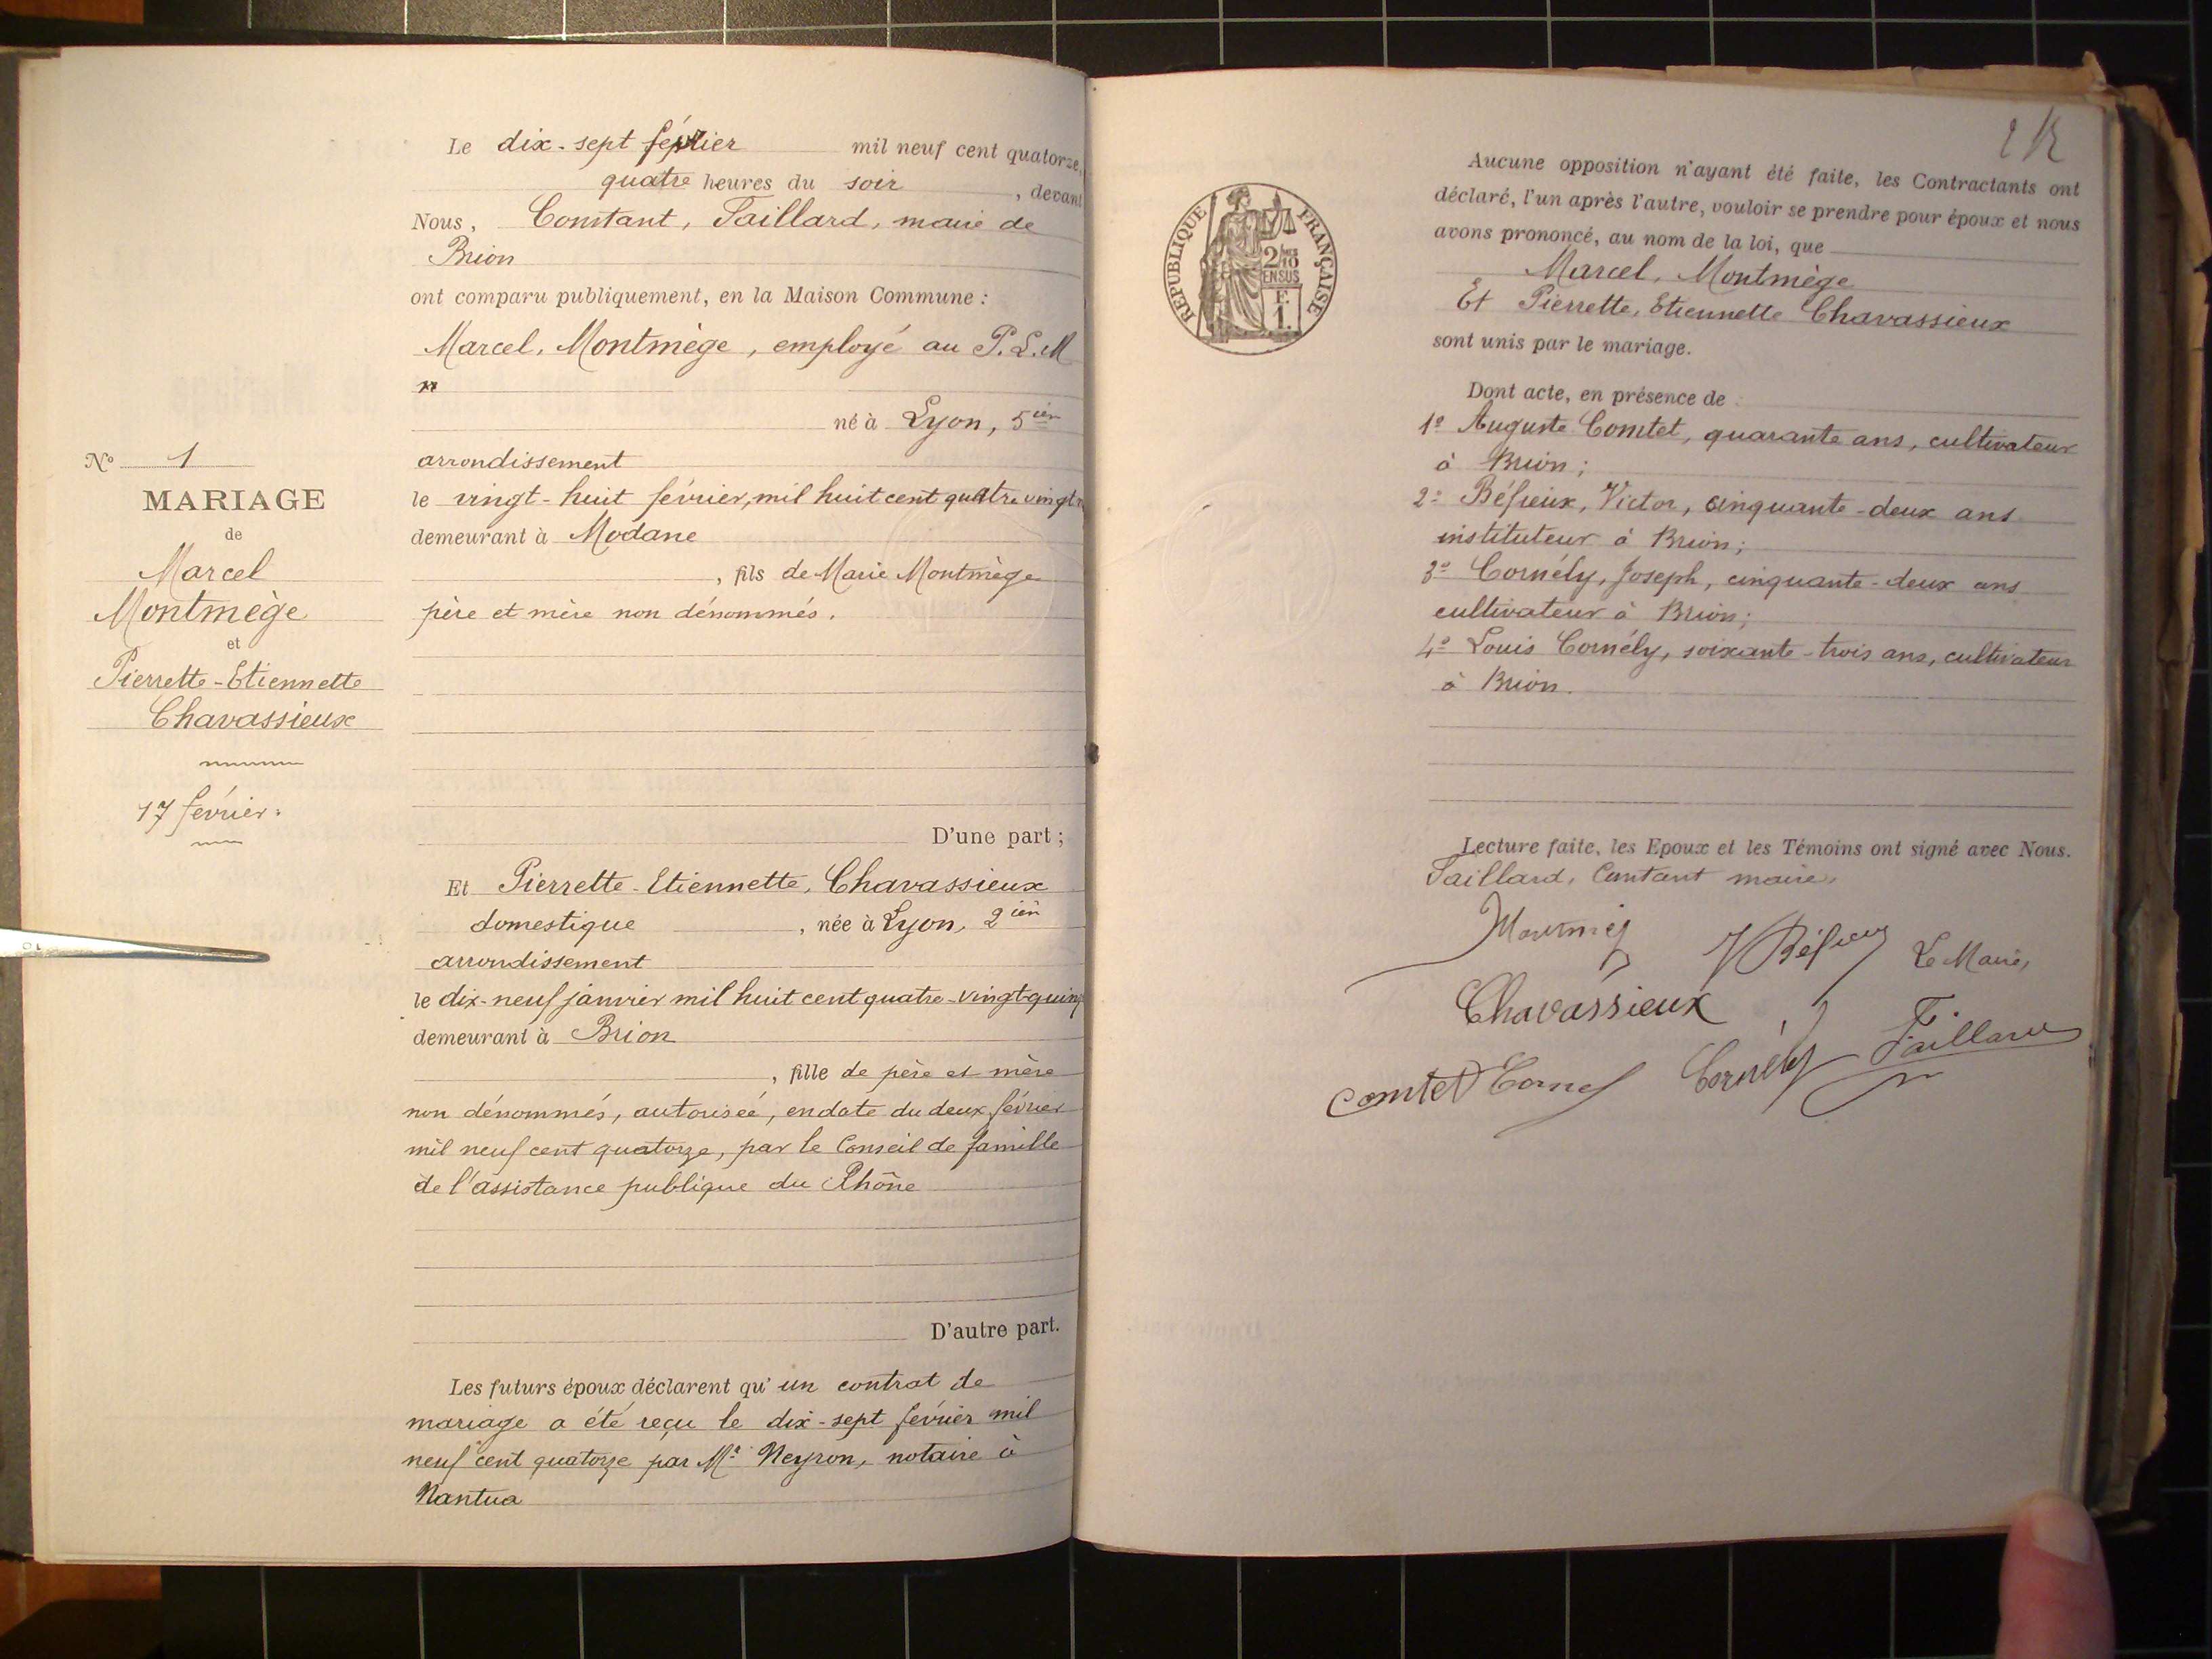 Le dix-sept février mil neuf cent quatorze,
quatre heures du soir, devant
Nous, Constant, Taillard, maire de
Brion
ont comparu publiquement, en la Maison Commune :
Marcel, Montmège, employé au P.L.M
né à Lyon, 5ièm
arrondissement
le vingt-huit février, mil huit cent quatre vingt
demeurant à Modane
, fils de Marie Montmège
père et mère non dénommés.
D'une part ;
Et Pierrette-Etiennette, Chavassieux
domestique, née à Lyon, 2ièm
arrondissement
le dix-neuf janvier mil huit cent quatre-vingt-quinz
demeurant à Brion
, fille de père et mère
non dénommés, autorisée, en date du deux février
mil neuf cent quatorze, par le Conseil de famille
de l'assistance publique du Rhône
D'autre part.
Les futurs époux déclarent qu'un contrat de
mariage a été reçu le dix-sept février mil
neuf cent quatorze par Me Neyron, notaire à
Nantua
No 1
MARIAGE
de
Marcel
Montmège
et
Pierrette-Etiennette
Chavassieux
17 février.
RÉPUBLIQUE FRANÇAISE
2/10
EN SUS
F.
1.
Aucune opposition n'ayant été faite, les Contractants ont
déclaré, l'un après l'autre, vouloir se prendre pour époux et nous
avons prononcé, au nom de la loi, que
Marcel, Montmège
Et Pierrette, Etiennette Chavassieux
sont unis par le mariage.
Dont acte, en présence de
1o Auguste Comtet, quarante ans, cultivateur
à Brion ;
2o Béfieux, Victor, cinquante-deux ans
instituteur à Brion ;
3o Cornély, Joseph, cinquante-deux ans
cultivateur à Brion ;
4o Louis Cornély, soixante-trois ans, cultivateur
à Brion.
Lecture faite, les Epoux et les Témoins ont signé avec Nous.
Taillard, Constant maire,
Le Maire,
Chavassieux
Taillard
Comtet Cornély